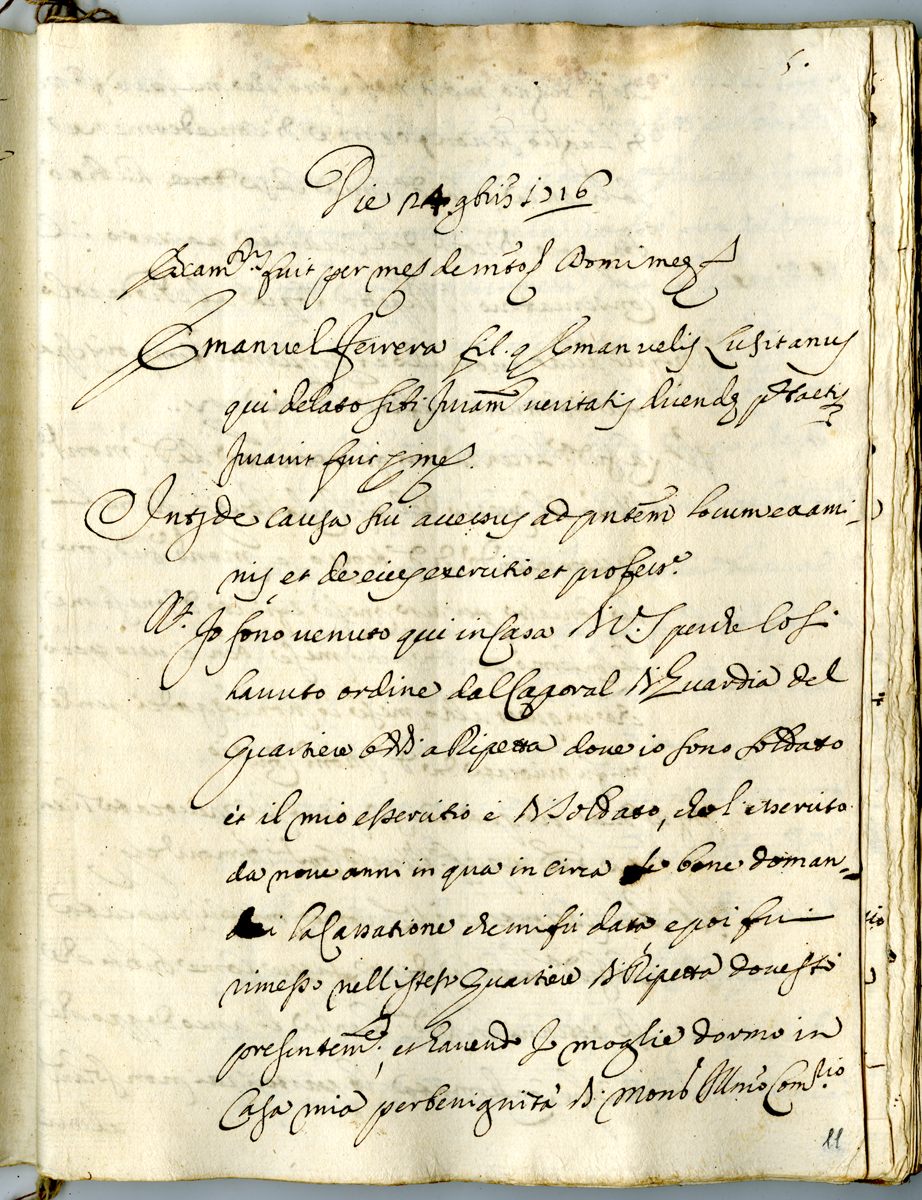 5.
Die 24 9bris 1716
Exam.tus fuit per me de m.to Domi meę
Emanuel Ferrera fil. q. Emanuelis Lusitanus
qui delato sibi Juram.to veritatis dicendę p.t tactis
Juravit fuit p. me
Int.s de causa sui accessus ad pntem locum exami=
nis, et de eius exercitio et profess.e
R.t Io sono venuto qui in Casa di V.S. perche Cosi
havuto ordine dal Caporal di Guardia del
Quartiere di a Ripetta dove io sono soldato
et il mio essercitio è di Soldato, che l'essercito
da nove anni in qua in circa se bene doman=
dai la Cassatione che mi fù data, e poi fui
rimesso nell'istesso Quartiere di Ripetta dove sti
presentem.e, et havendo Io moglie dormo in
Casa mia per benignità di Mons.r Ill.mo Com.rio
11